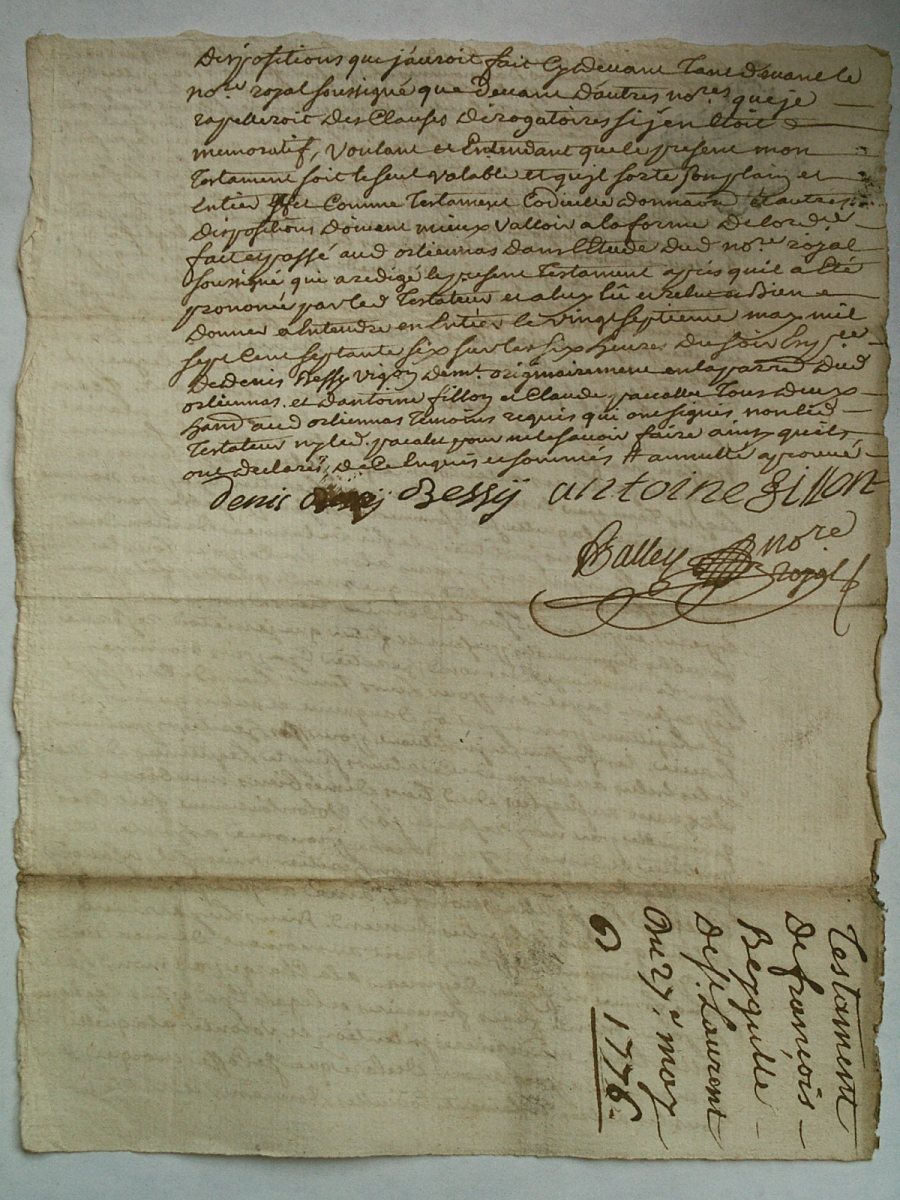 dispositions que j'aurois fait cy devant tant devant le
no.re royal soussigné que devant d'autres no.res que je
rapellerois des clauses dérogatoires si j'en étois
memoratif, voulant et entendant que le present mon
testament soit le seul valable et qu'il sorte son plain et
entier effet comme testament codicille donnaon et autres
dispositions doivent mieux valloir a la forme de l'ord.re
fait et passé aud orliennas dans l'étude dud no.re royal
soussigné qui a redigé le present testament apres qu'il a été
prononcé par led testateur et a luy lû et relu a bien
donner a entendre en entier le vingt septieme may mil
sept cent septante six sur les six heures du soir en p.ce
de denis Bessy vigon dem.t originairement en la parre dud
orliennas et d'antoine fillon et Claude pacallu tous deux
hab.t aud orliennas temoins requis qui ont signés non led
testateur ny led. pacalu pour ne le savoir faire ainsy qu'ils
ont declarés de ce enquis et sommés # annullé aprouvé
denis Bessÿ antoine Fillont
Balley no.re
royal
Testament
de francois
Beyquille
de s.t Laurent
Du 27.e may
1776.